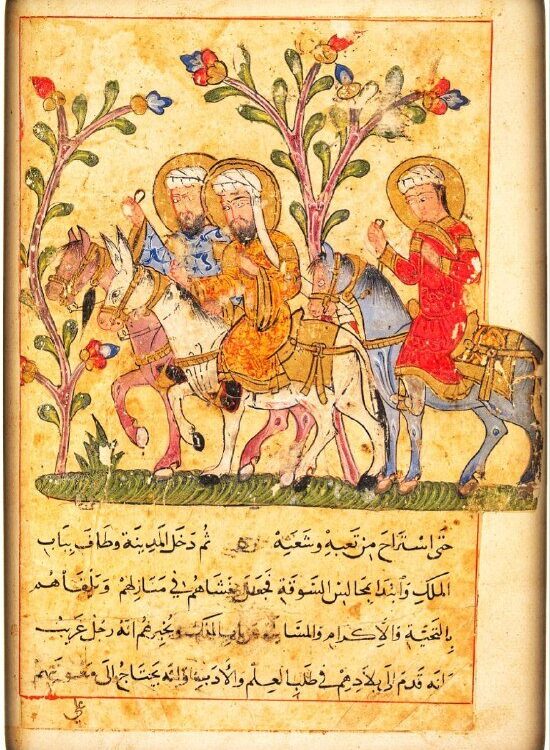 حتى استراح من تعبه وشعثه ثم دخل المدينة وطاف بباب
الملك وابتدا بمجالس السوقة فجعل يغشاهم في منازلهم ويلقاهم
بالتحية والاكرام ويخبرهم انه رجل غريب
وانه قدم الى بلادهم في طلب العلم والأدب وانه يحتاج الى معونتهم
على